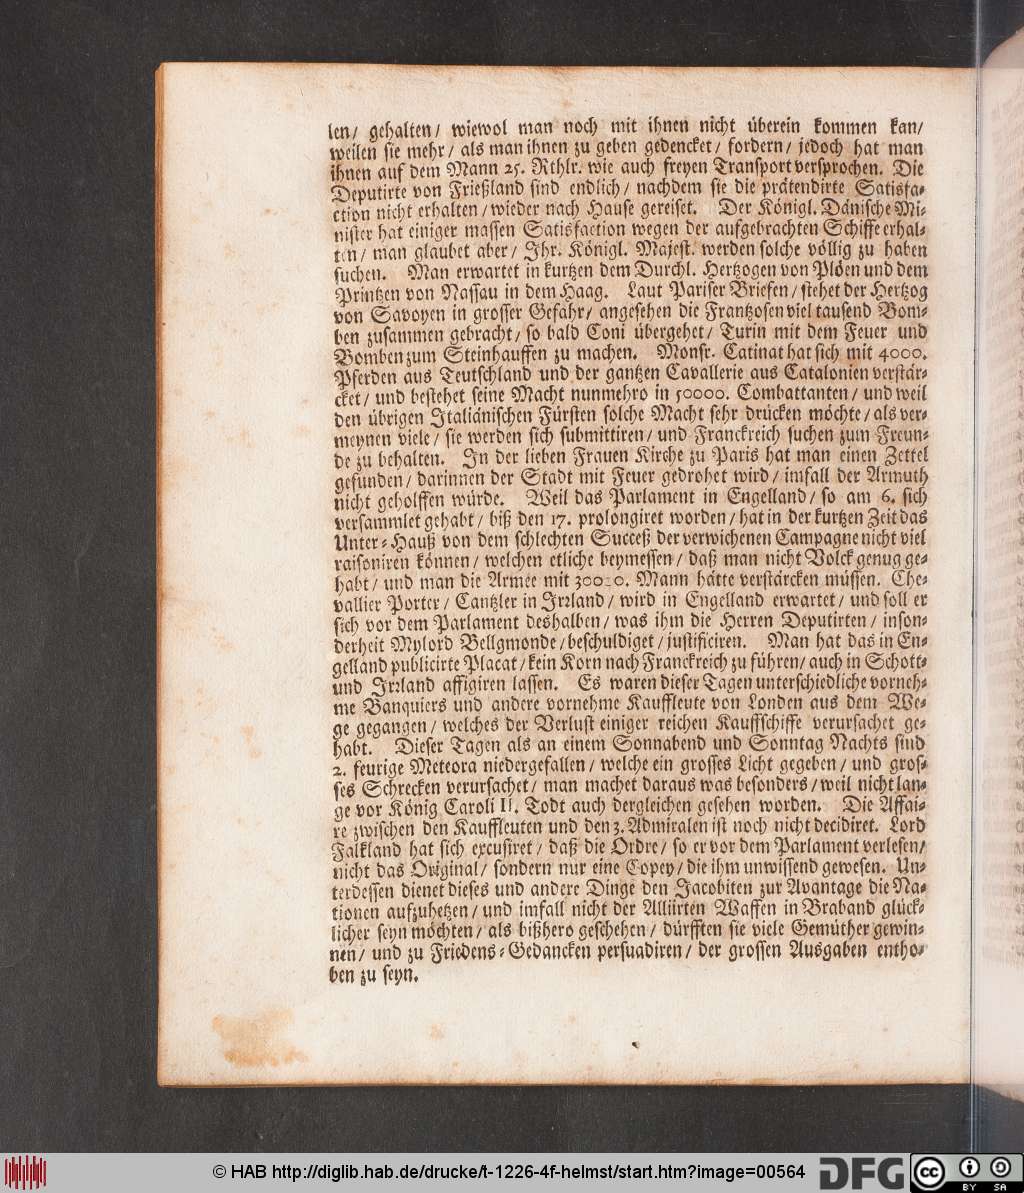 len/ gehalten/ wiewol man noch mit ihnen nicht überein kommen kan/
weilen sie mehr/ als man ihnen zu geben gedencket/ fordern/ jedoch hat man
ihnen auf dem Mann 25. Rthlr. wie auch freyen Transport versprochen. Die
Deputirte von Frießland sind endlich/ nachdem sie die prätendirte Satisfa-
ction nicht erhalten/ wieder nach Hause gereiset. Der Königl. Dänische Mi-
nister hat einiger massen Satisfaction wegen der aufgebrachten Schiffe erhal-
ten/ man glaubet aber/ Ihr. Königl. Majest. werden solche völlig zu haben
suchen. Man erwartet in kurtzen dem Durchl. Hertzogen von Plöen und dem
Printzen von Nassau in dem Haag. Laut Pariser Briefen/ stehet der Hertzog
von Savoyen in grosser Gefahr/ angesehen die Frantzosen viel tausend Bom-
ben zusammen gebracht/ so bald Coni übergehet/ Turin mit dem Feuer und
Bomben zum Steinhauffen zu machen. Monsr. Catinat hat sich mit 4000.
Pferden aus Teutschland und der gantzen Cavallerie aus Catalonien verstär-
cket/ und bestehet seine Macht nunmehro in 50000. Combattanten/ und weil
den übrigen Italiänischen Fürsten solche Macht sehr drücken möchte/ als ver-
meynen viele/ sie werden sich submittiren/ und Franckreich suchen zum Freun-
de zu behalten. In der lieben Frauen Kirche zu Paris hat man einen Zettel
gefunden/ darinnen der Stadt mit Feuer gedrohet wird/ imfall der Armuth
nicht geholffen würde. Weil das Parlament in Engelland/ so am 6. sich
versammlet gehabt/ biß den 17. prolongiret worden/ hat in der kurtzen Zeit das
Unter-Hauß von dem schlechten Succeß der verwichenen Campagne nicht viel
raisoniren können/ welchen etliche beymessen/ daß man nicht Volck genug ge-
habt/ und man die Armee mit 30000. Mann hätte verstärcken müssen. Che-
vallier Porter/ Cantzler in Irrland/ wird in Engelland erwartet/ und soll er
sich vor dem Parlament deshalben/ was ihm die Herren Deputirten/ inson-
derheit Mylord Bellgmonde/ beschuldiget/ justificiren. Man hat das in En-
gelland publicirte Placat/ kein Korn nach Franckreich zu führen/ auch in Schott-
und Irrland affigiren lassen. Es waren dieser Tagen unterschiedliche vorneh-
me Banquiers und andere vornehme Kauffleute von Londen aus dem We-
ge gegangen/ welches der Verlust einiger reichen Kauffschiffe verursachet ge-
habt. Dieser Tagen als an einem Sonnabend und Sonntag Nachts sind
2. feurige Meteora niedergefallen/ welche ein grosses Licht gegeben/ und gros-
ses Schrecken verursachet/ man machet daraus was besonders/ weil nicht lan-
ge vor König Caroli II. Todt auch dergleichen gesehen worden. Die Affai-
re zwischen den Kauffleuten und den 3. Admiralen ist noch nicht decidiret. Lord
Falkland hat sich excusiret/ daß die Ordre/ so er vor dem Parlament verlesen/
nicht das Original/ sondern nur eine Copey/ die ihm unwissend gewesen. Un-
terdessen dienet dieses und andere Dinge den Jacobiten zur Avantage die Na-
tionen aufzuhetzen/ und imfall nicht der Alliirten Waffen in Braband glück-
licher seyn möchten/ als bißhero geschehen/ dürfften sie viele Gemüther gewin-
nen/ und zu Friedens-Gedancken persuadiren/ der grossen Ausgaben entho-
ben zu seyn.
© HAB http://diglib.hab.de/drucke/t-1226-4f-helmst/start.htm?image=00564
DFG
cc
BY SA